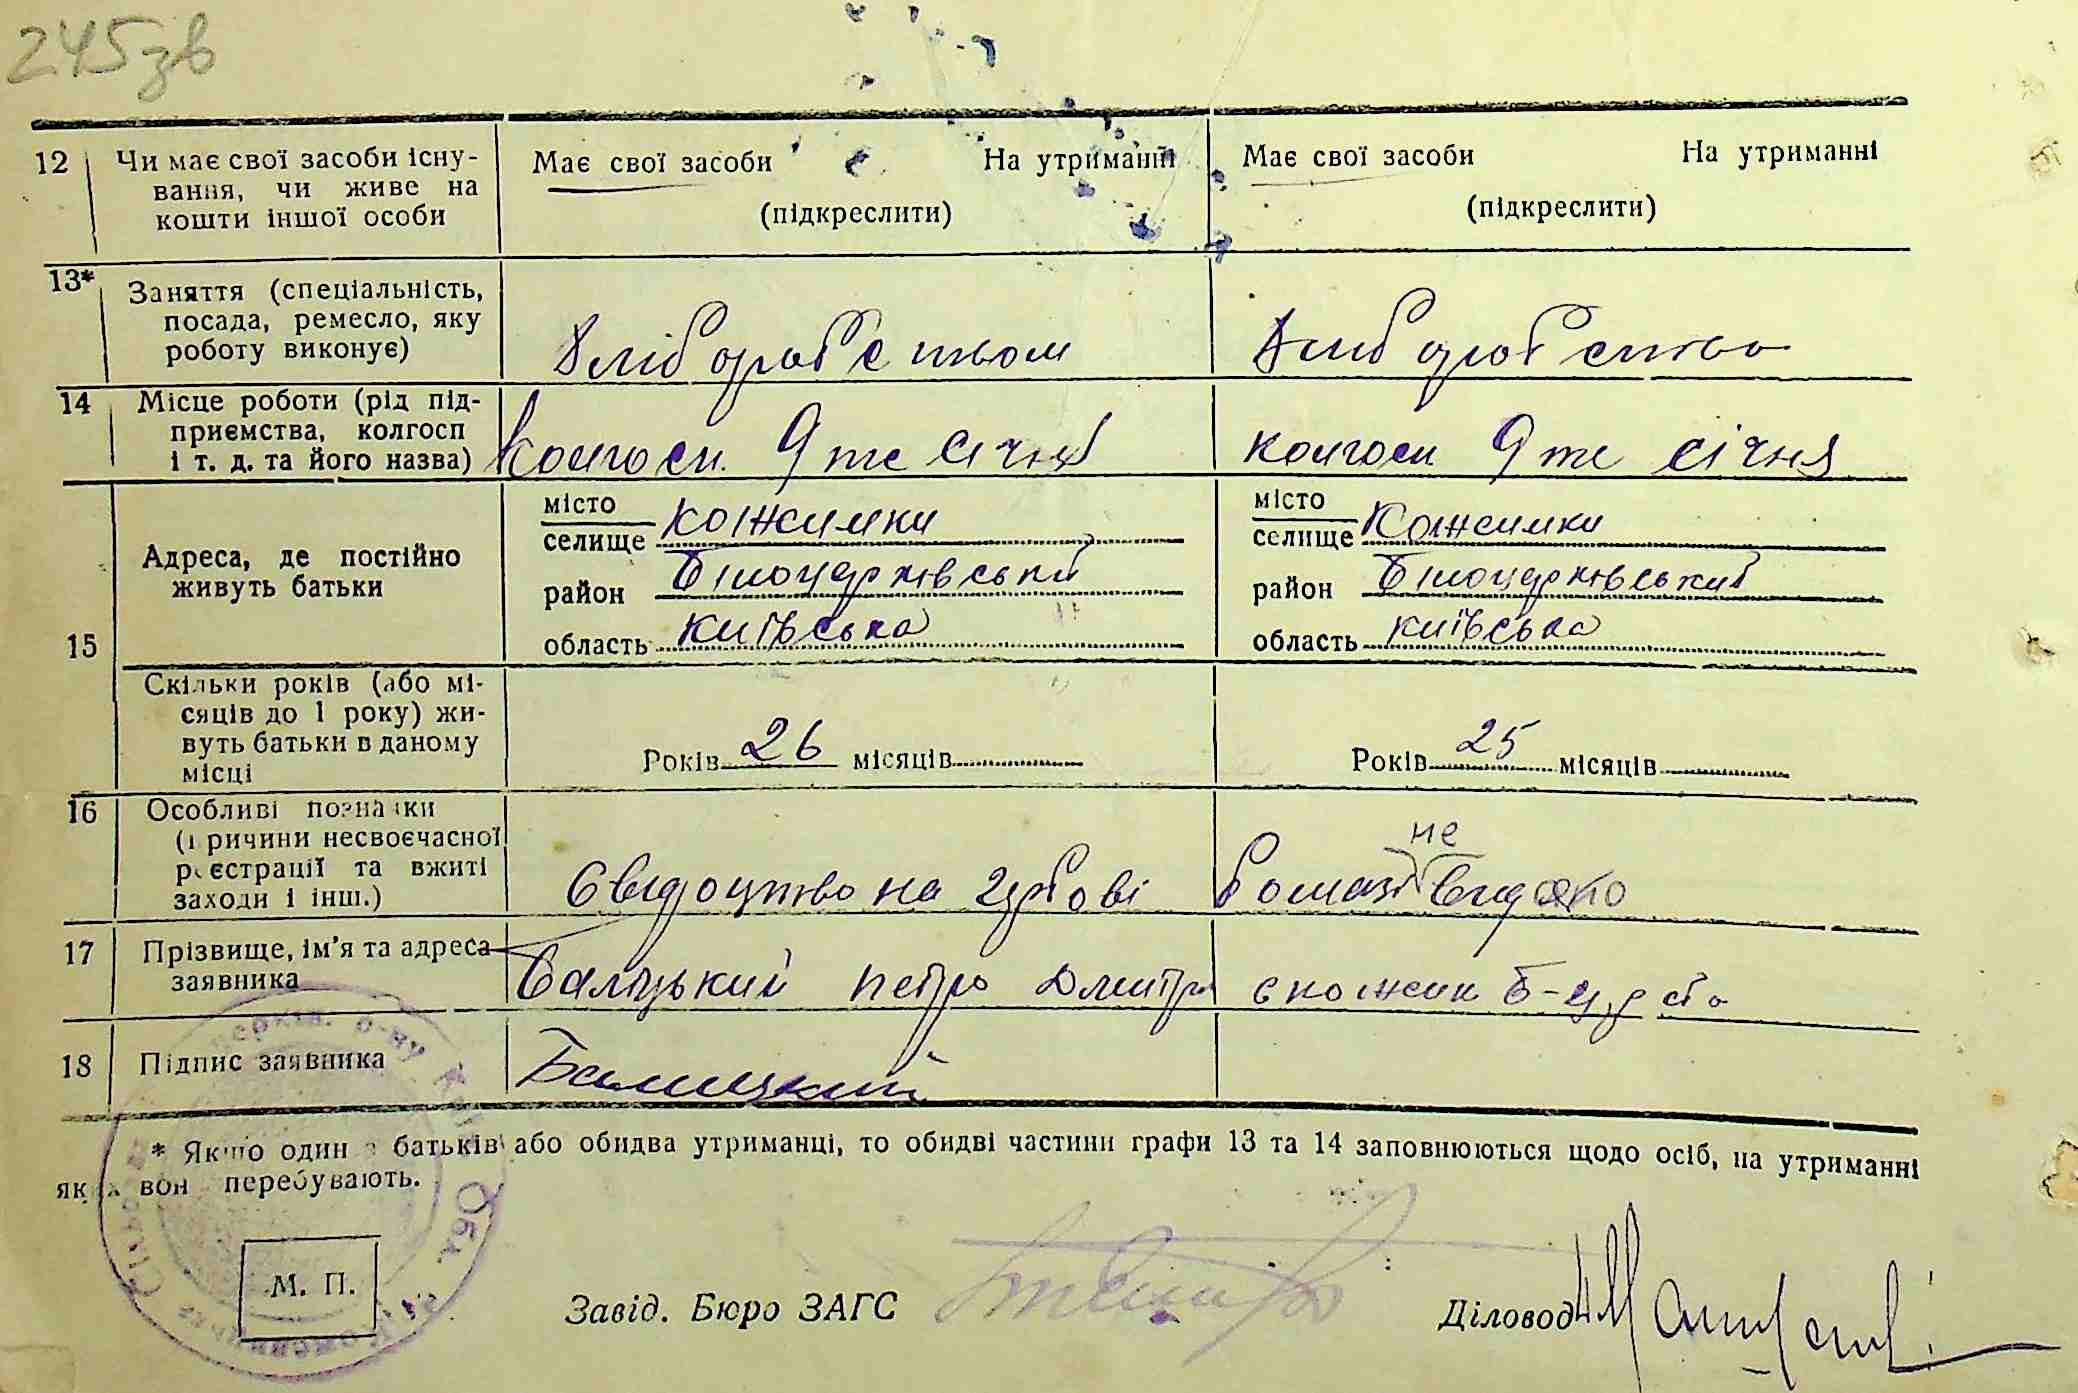 245зв
12 Чи має свої засоби існу-
вання, чи живе на
кошти іншої особи
Має свої засоби На утриманні
(підкреслити)
Має свої засоби На утриманні
(підкреслити)
13* Заняття (спеціальність,
посада, ремесло, яку
роботу виконує)
Хліборобством
Хліборобство
14 Місце роботи (рід під-
приємства, колгосп
і т. д. та його назва)
колгосп 9те січня
колгосп 9те січня
15 Адреса, де постійно
живуть батьки
місто
селище Кожимки
район Білоцерківський
область Київська
місто
селище Кожимки
район Білоцерківський
область Київська
Скільки років (або мі-
сяців до 1 року) жи-
вуть батьки в даному
місці
Років 26 місяців
Років 25 місяців
16 Особливі познаки
(причини несвоєчасної
реєстрації та вжиті
заходи і інш.)
не
Свідоцтво на гербові бомазі видано
17 Прізвище, ім'я та адреса
заявника
Балицький Петро Дмитр
18 Підпис заявника
Балицкий
* Якщо один з батьків або обидва утриманці, то обидві частини графи 13 та 14 заповнюються щодо осіб, на утриманні
яких вон перебувають.
М. П.
Завід. Бюро ЗАГС
Діловод